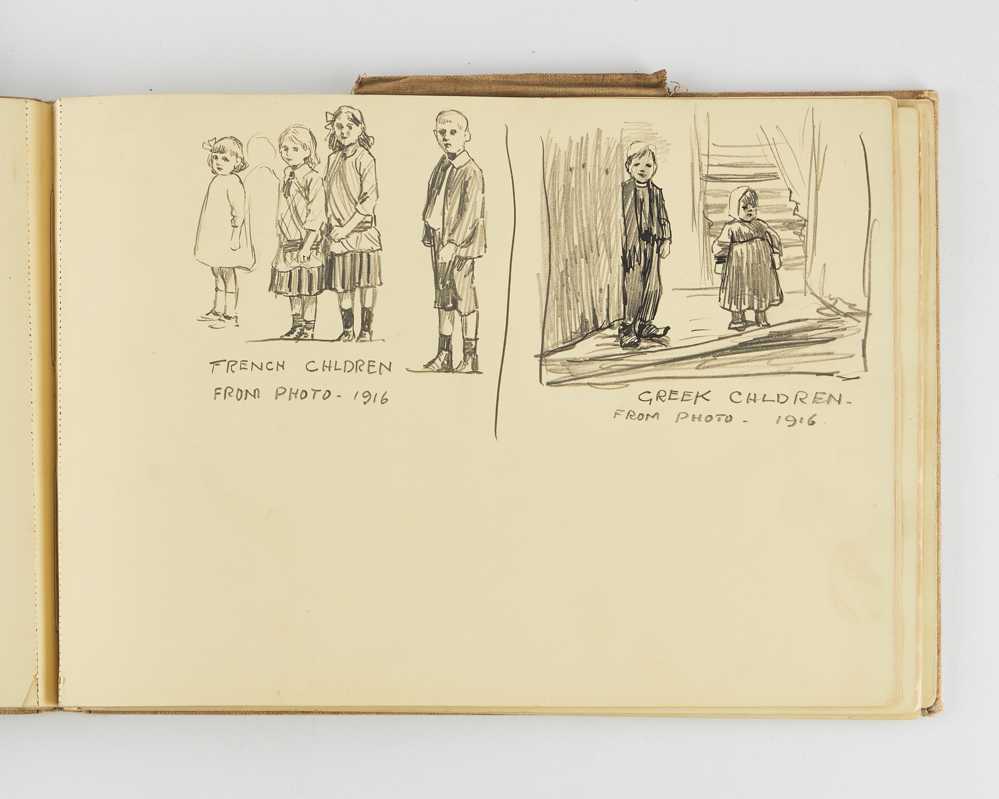 FRENCH CHLDREN
FROM PHOTO - 1916
GREEK CHLDREN -
FROM PHOTO - 1916